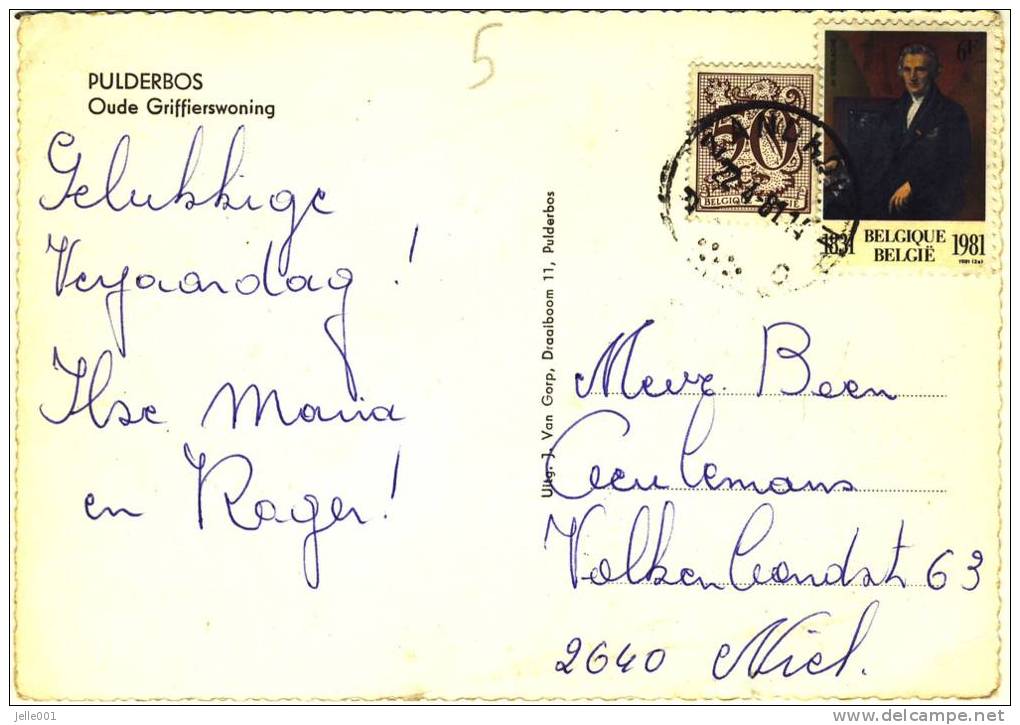 PULDERBOS
Oude Griffierswoning
5
Gelukkige
Verjaardag !
Ilse Maria
en Roger!
Uitg. J. Van Gorp, Draaiboom 11, Pulderbos
50
BELGIQUE BELGIË
22
-81
6F
1831 BELGIQUE 1981
BELGIË
Mevr. Been
Ceulemans
Volkenbondst 63
2640 Niel.
jelle001
delcampe.net